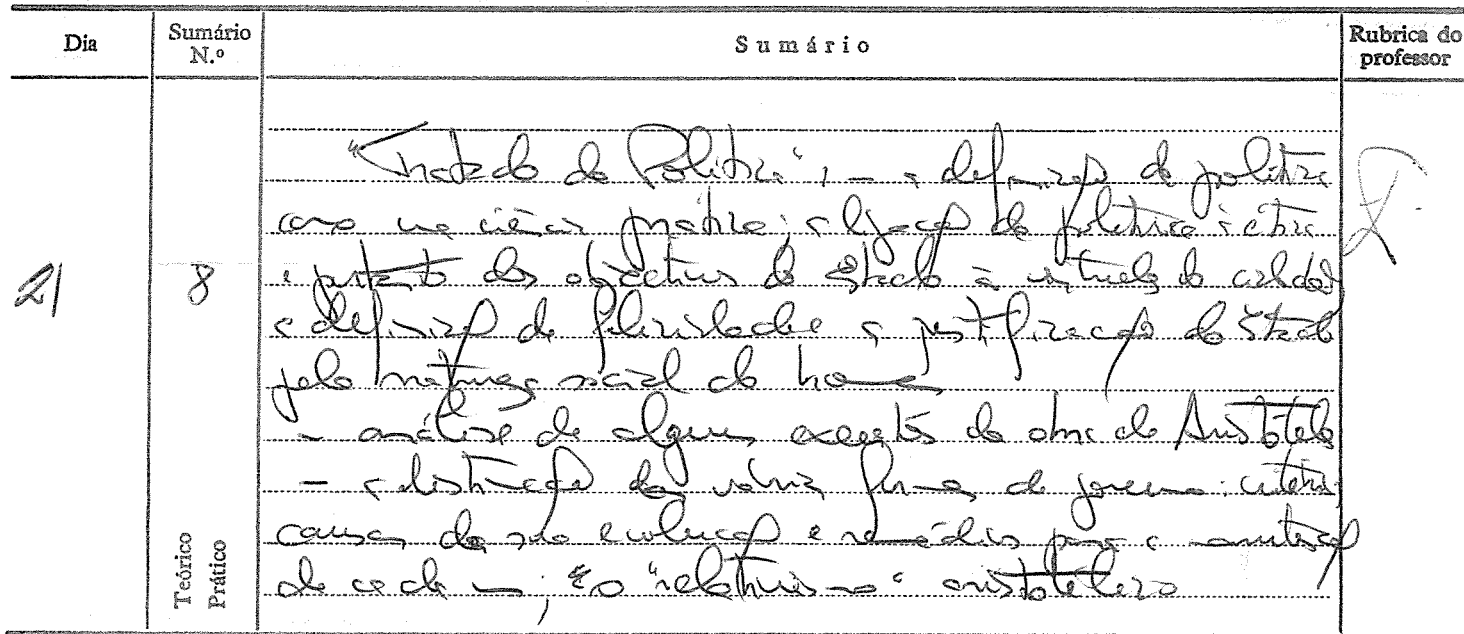 Dia
Sumário N.º
Sumário
Rubrica do professor
21
8
Teórico
Prático
"Tratado da Política", - a definição de política
como uma ciência prática; a ligação da política à ética
e portanto dos objectivos do Estado à virtude do cidadão
a definição de felicidade a justificação do Estado
pela natureza social do homem
- análise de alguns excertos da obra de Aristóteles
- a distinção das várias formas de governo: critérios
causas da sua evolução e remédios para a manutenção
de cada um; o "relativismo" aristotélico